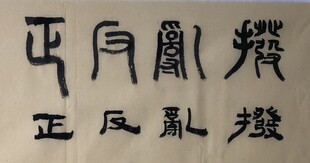 撥亂反正
撥亂反正